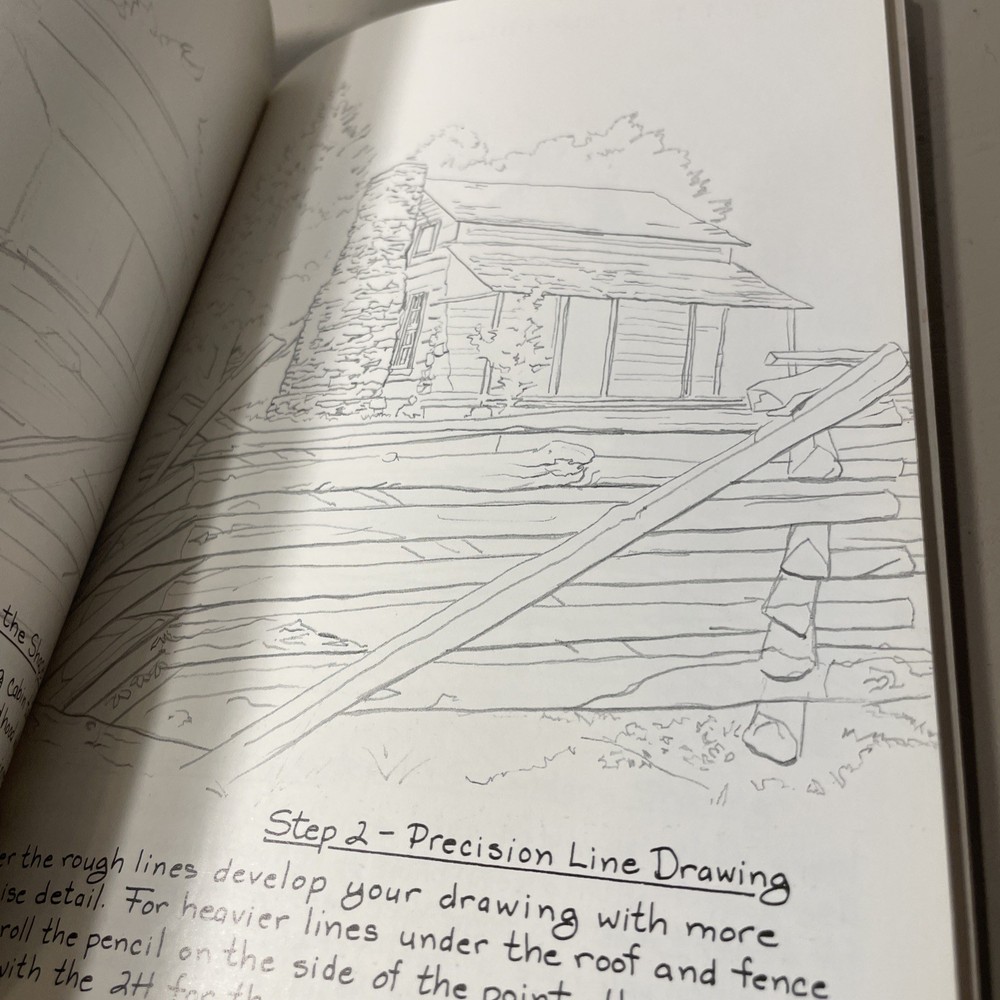 the
cabin
Step 2 - Precision Line Drawing
the rough lines develop your drawing with more
detail. For heavier lines under the roof and fence
roll the pencil on the side of the point
with the 2H for